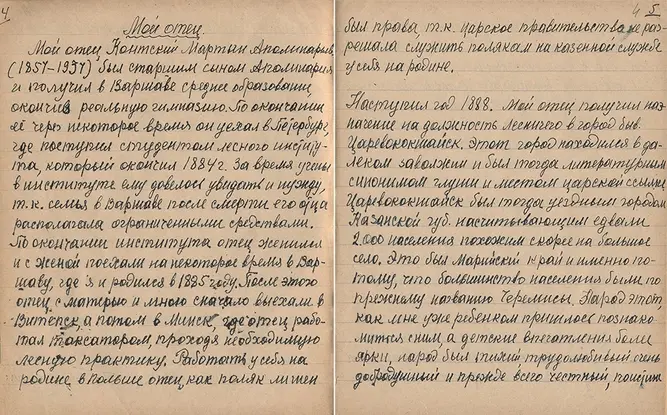 4
Мой отец.
Мой отец Контский Мартын Аполинариев.
(1857-1937) был старшим сыном Аполинария
и получил в Варшаве средне образовани,
окончив реальную гимназию. По окончании
её через некоторое время он уехал в Петербург,
где поступил студентом лесного институ-
та, который окончил 1884 г. За время учёбы
в институте ему довелось увидать и нужду,
т.к. семья в Варшаве после смерти его отца
располагала ограниченными средствами.
По окончании института отец женился
и с женой поехали на некоторое время в Вар-
шаву, где я и родился в 1885 году. После этого
отец с матерью и мною сначало выехали в
Витепск, а потом в Минск, где отец рабо-
тал таксатором, проходя необходимую
лесную практику. Работать у себя на
родине, в Польше отец, как поляк лишен
4 5
был права, т.к. царское правительство не раз-
решала служить полякам на казенной службе
у себя на родине.
Наступил год 1888. Мой отец получил наз-
начение на должность лесничего в город быв.
Царевококшайск. Этот город находился в да-
леком заволжии и был тогда литературным
синонимом глуши и местом царской ссылки.
Царевококшайск был тогда уездным городом
Казанской губ. насчитывающим едвали
2.000 населения похожим скорее на большое
село. Это был Марийский край и именно по-
тому, что большинство населения были по
прежнему названию Черемисы. Народ этот,
как мне уже ребенком пришлось познако-
миться с ним, а детские впечатления были
ярки, народ был тихий трудолюбивый очень
добродушный и прежде всего честный,